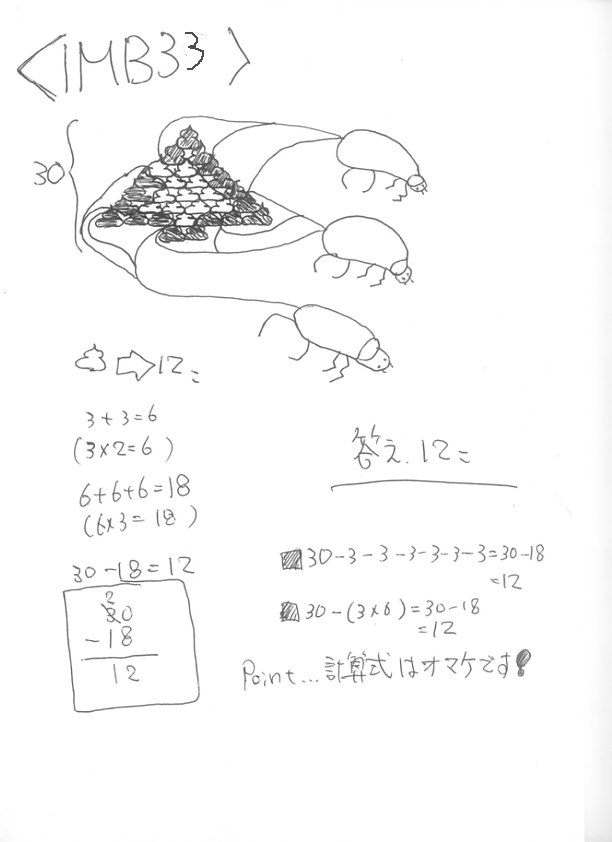 <IMB33>
30
⇨12こ
3+3=6
(3×2=6)
6+6+6=18
(6×3=18)
30-18=12
2
30
-18
12
答え.12こ
■30-3-3-3-3-3-3=30-18
=12
■30-(3×6)=30-18
=12
Point...計算式はオマケです!